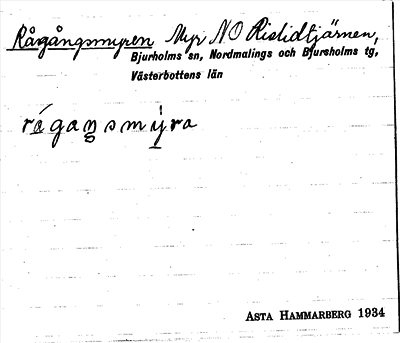 Rågångsmyren Myr NO Rislidtjärnen,
Bjurholms sn, Nordmalings och Bjursholms tg,
Västerbottens län
rágaŋsmýra
ASTA HAMMARBERG 1934